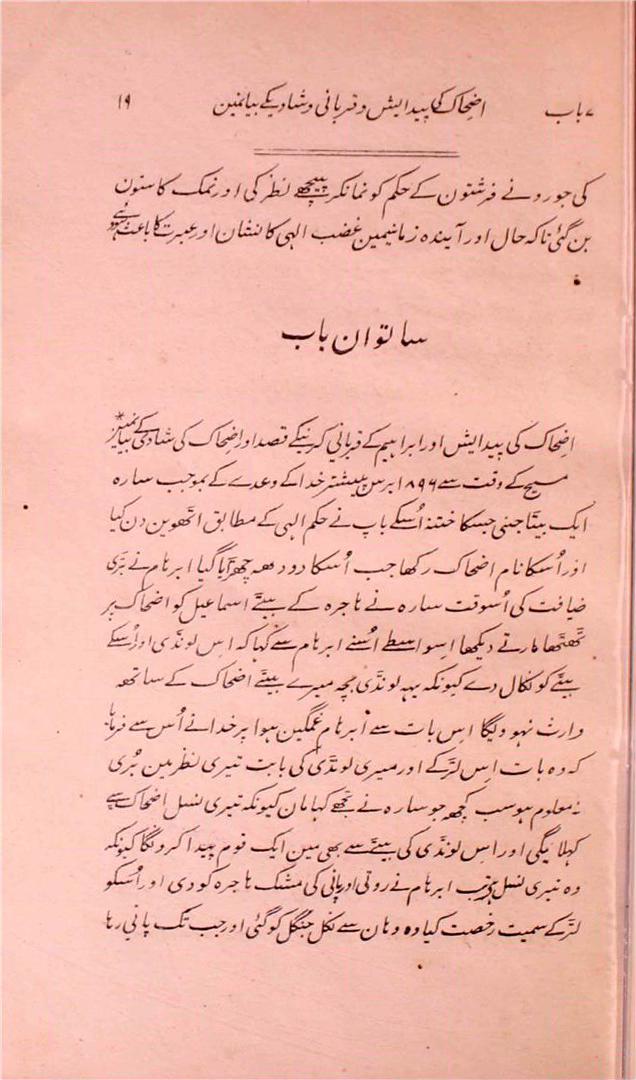 ۷ باب اضحاک کی پیدایش و قربانی و شادیکے بیانمین ۱۹
کی جورو نے فرشتون کے حکم کو نمانکر پیچھے نظر کی اور نمک کا ستون
بن گئی تاکہ حال اور آیندہ زمانیمین غضب الہی کا نشان اور عبرت کا باعث ہووے
ساتوان باب
اضحاک کی پیدایش اور ابراہیم کے قربانی کرنیکے قصد اور اضحاک کی شادی کے بیانمین*
مسیح کے وقت سے ۱۸۹۶ برس پیشتر خدا کے وعدے کے بموجب سارہ
ایک بیٹا جنی جسکا ختنہ اُسکے باپ نے حکم الہی کے مطابق اٹھوین دن کیا
اور اُسکا نام اضحاک رکھا جب اُسکا دودھہ چھڑایا گیا ابرہام نے بڑی
ضیافت کی اُسوقت سارہ نے ہاجرہ کے بیٹے اسماعیل کو اضحاک پر
ٹھٹھا مارتے دیکھا اِسواسطے اُسنے ابرہام سے کہا کہ اِس لونڈی اور اُسکے
بیٹے کو نکال دے کیونکہ یہہ لونڈی بچہ میرے بیٹے اضحاک کے ساتھہ
وارث نہوویگا اِس بات سے ابرہام غمگین ہوا پر خدا نے اُس سے فرمایا
کہ وہ بات اِس لڑکے اور میری لونڈی کی بابت تیری نظر مین بُری
نہ معلوم ہو سب کچھہ جو سارہ نے تجھے کہا مان کیونکہ تیری نسل اضحاک سے
کہلائیگی اور اِس لونڈی کی بیٹے سے بھی مین ایک قوم پیدا کرونگا کیونکہ
وہ تیری نسل ہی تب ابرہام نے روٹی اور پانی کی مشک ہاجرہ کو دی اور اُسکو
لڑکے سمیت رخصت کیا وہ وہان سے نکل جنگل کو گئی اور جب تک پانی رہا